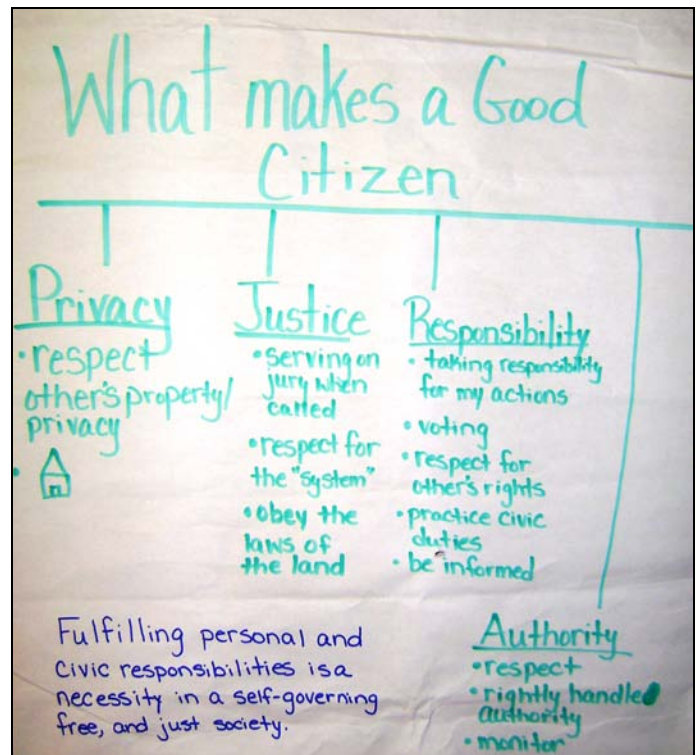 What makes a Good
Citizen
Privacy
• respect
other's property/
privacy
•
Justice
• serving on
jury when
called
• respect for
the "system"
• obey the
laws of
the land
Responsibility
• taking responsibility
for my actions
• voting
• respect for
other's rights
• practice civic
duties
• be informed
Authority
• respect
• rightly handled
authority
• monitor
Fulfilling personal and
civic responsibilities is a
necessity in a self-governing
free, and just society.